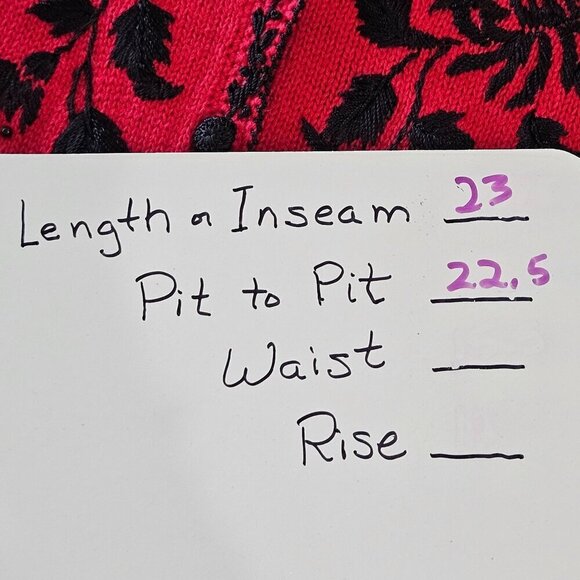 Length or Inseam 23
Pit to Pit 22.5
Waist
Rise